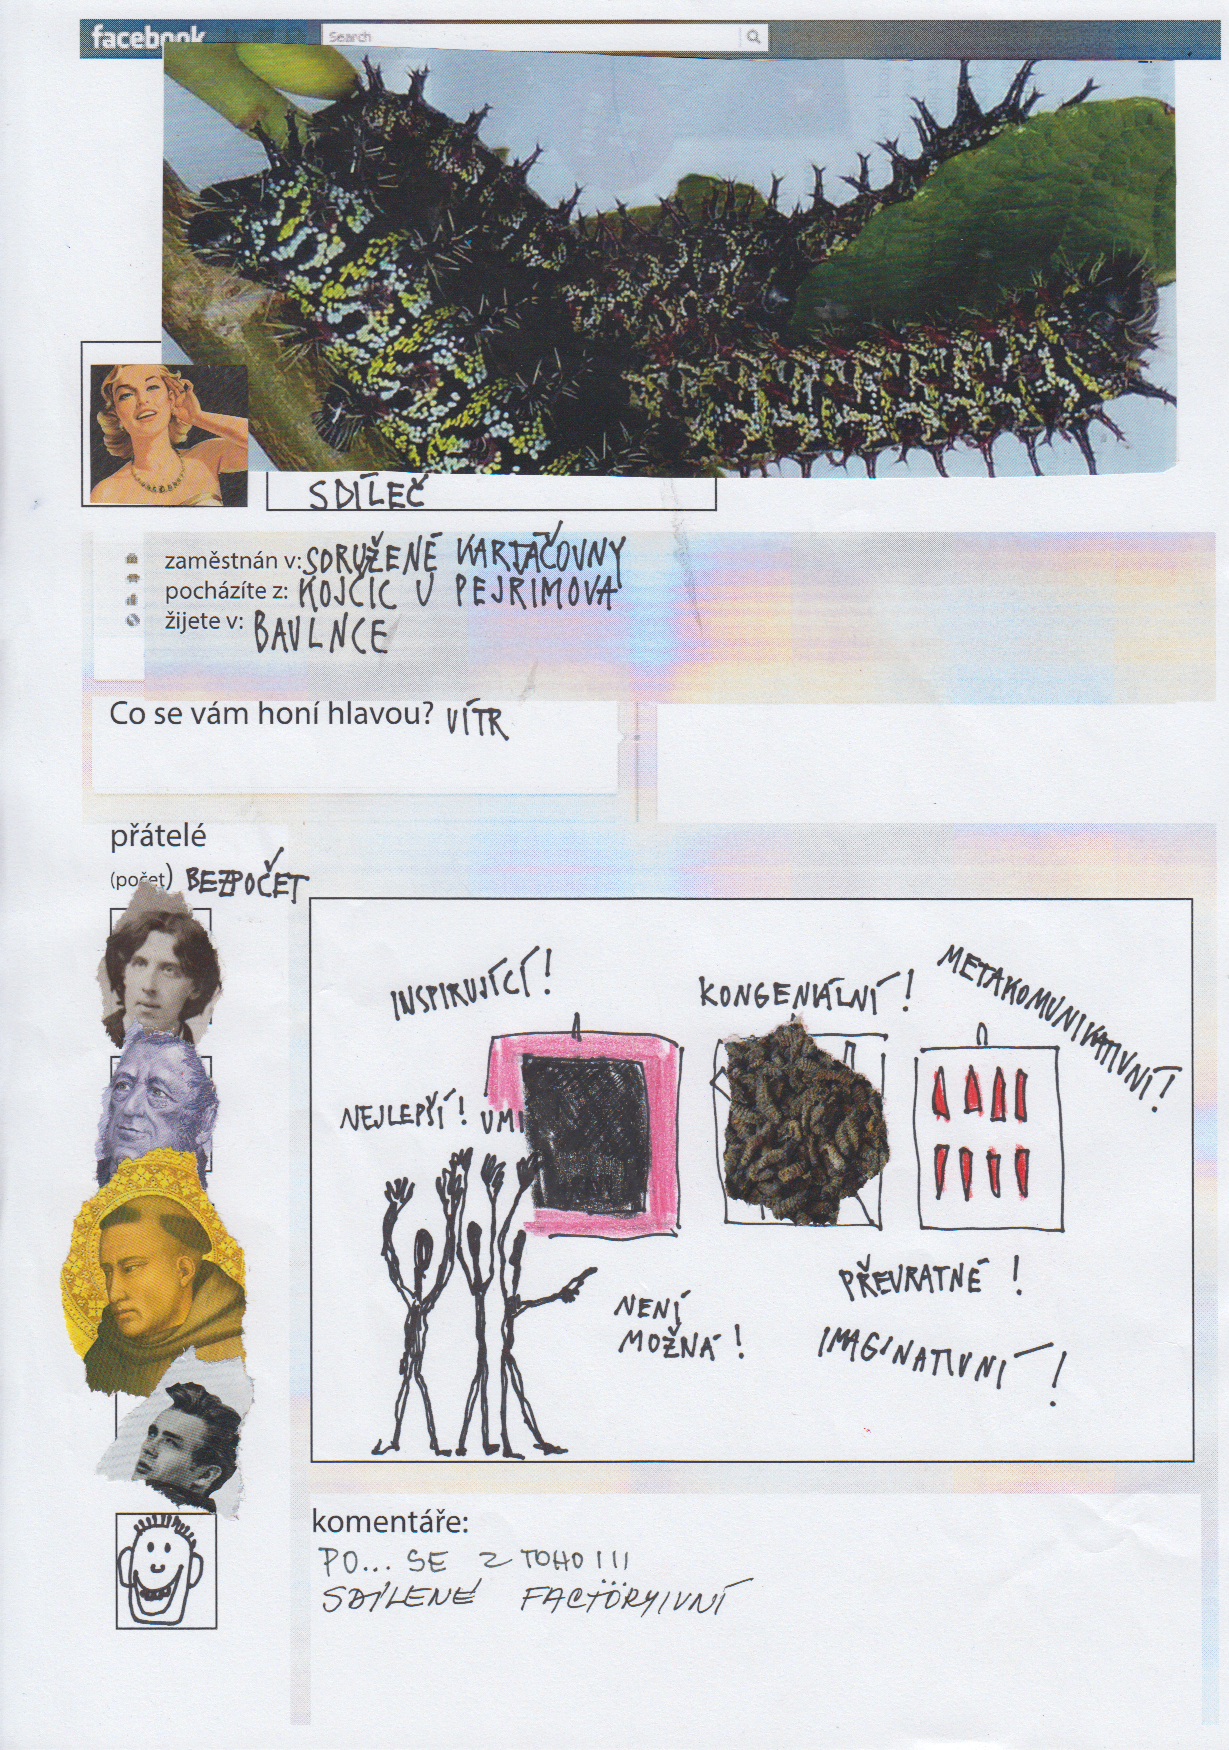 facebook
Search
SDÍLEČ
zaměstnán v: SDRUŽENÉ KARTÁČOVNY
pocházíte z: KOJČIC U PEJRIMOVA
žijete v: BAVLNCE
Co se vám honí hlavou? VÍTR
přátelé
(počet) BEZPOČET
INSPIRUJÍCÍ!
KONGENIÁLNÍ!
METAKOMUNIKATIVNÍ!
NEJLEPŠÍ! UMI
PŘEVRATNÉ!
NENÍ
MOŽNÁ!
IMAGINATIVNÍ!
komentáře:
PO... SE Z TOHO!!!
SDÍLENÉ FACTÖRYIVNÍ